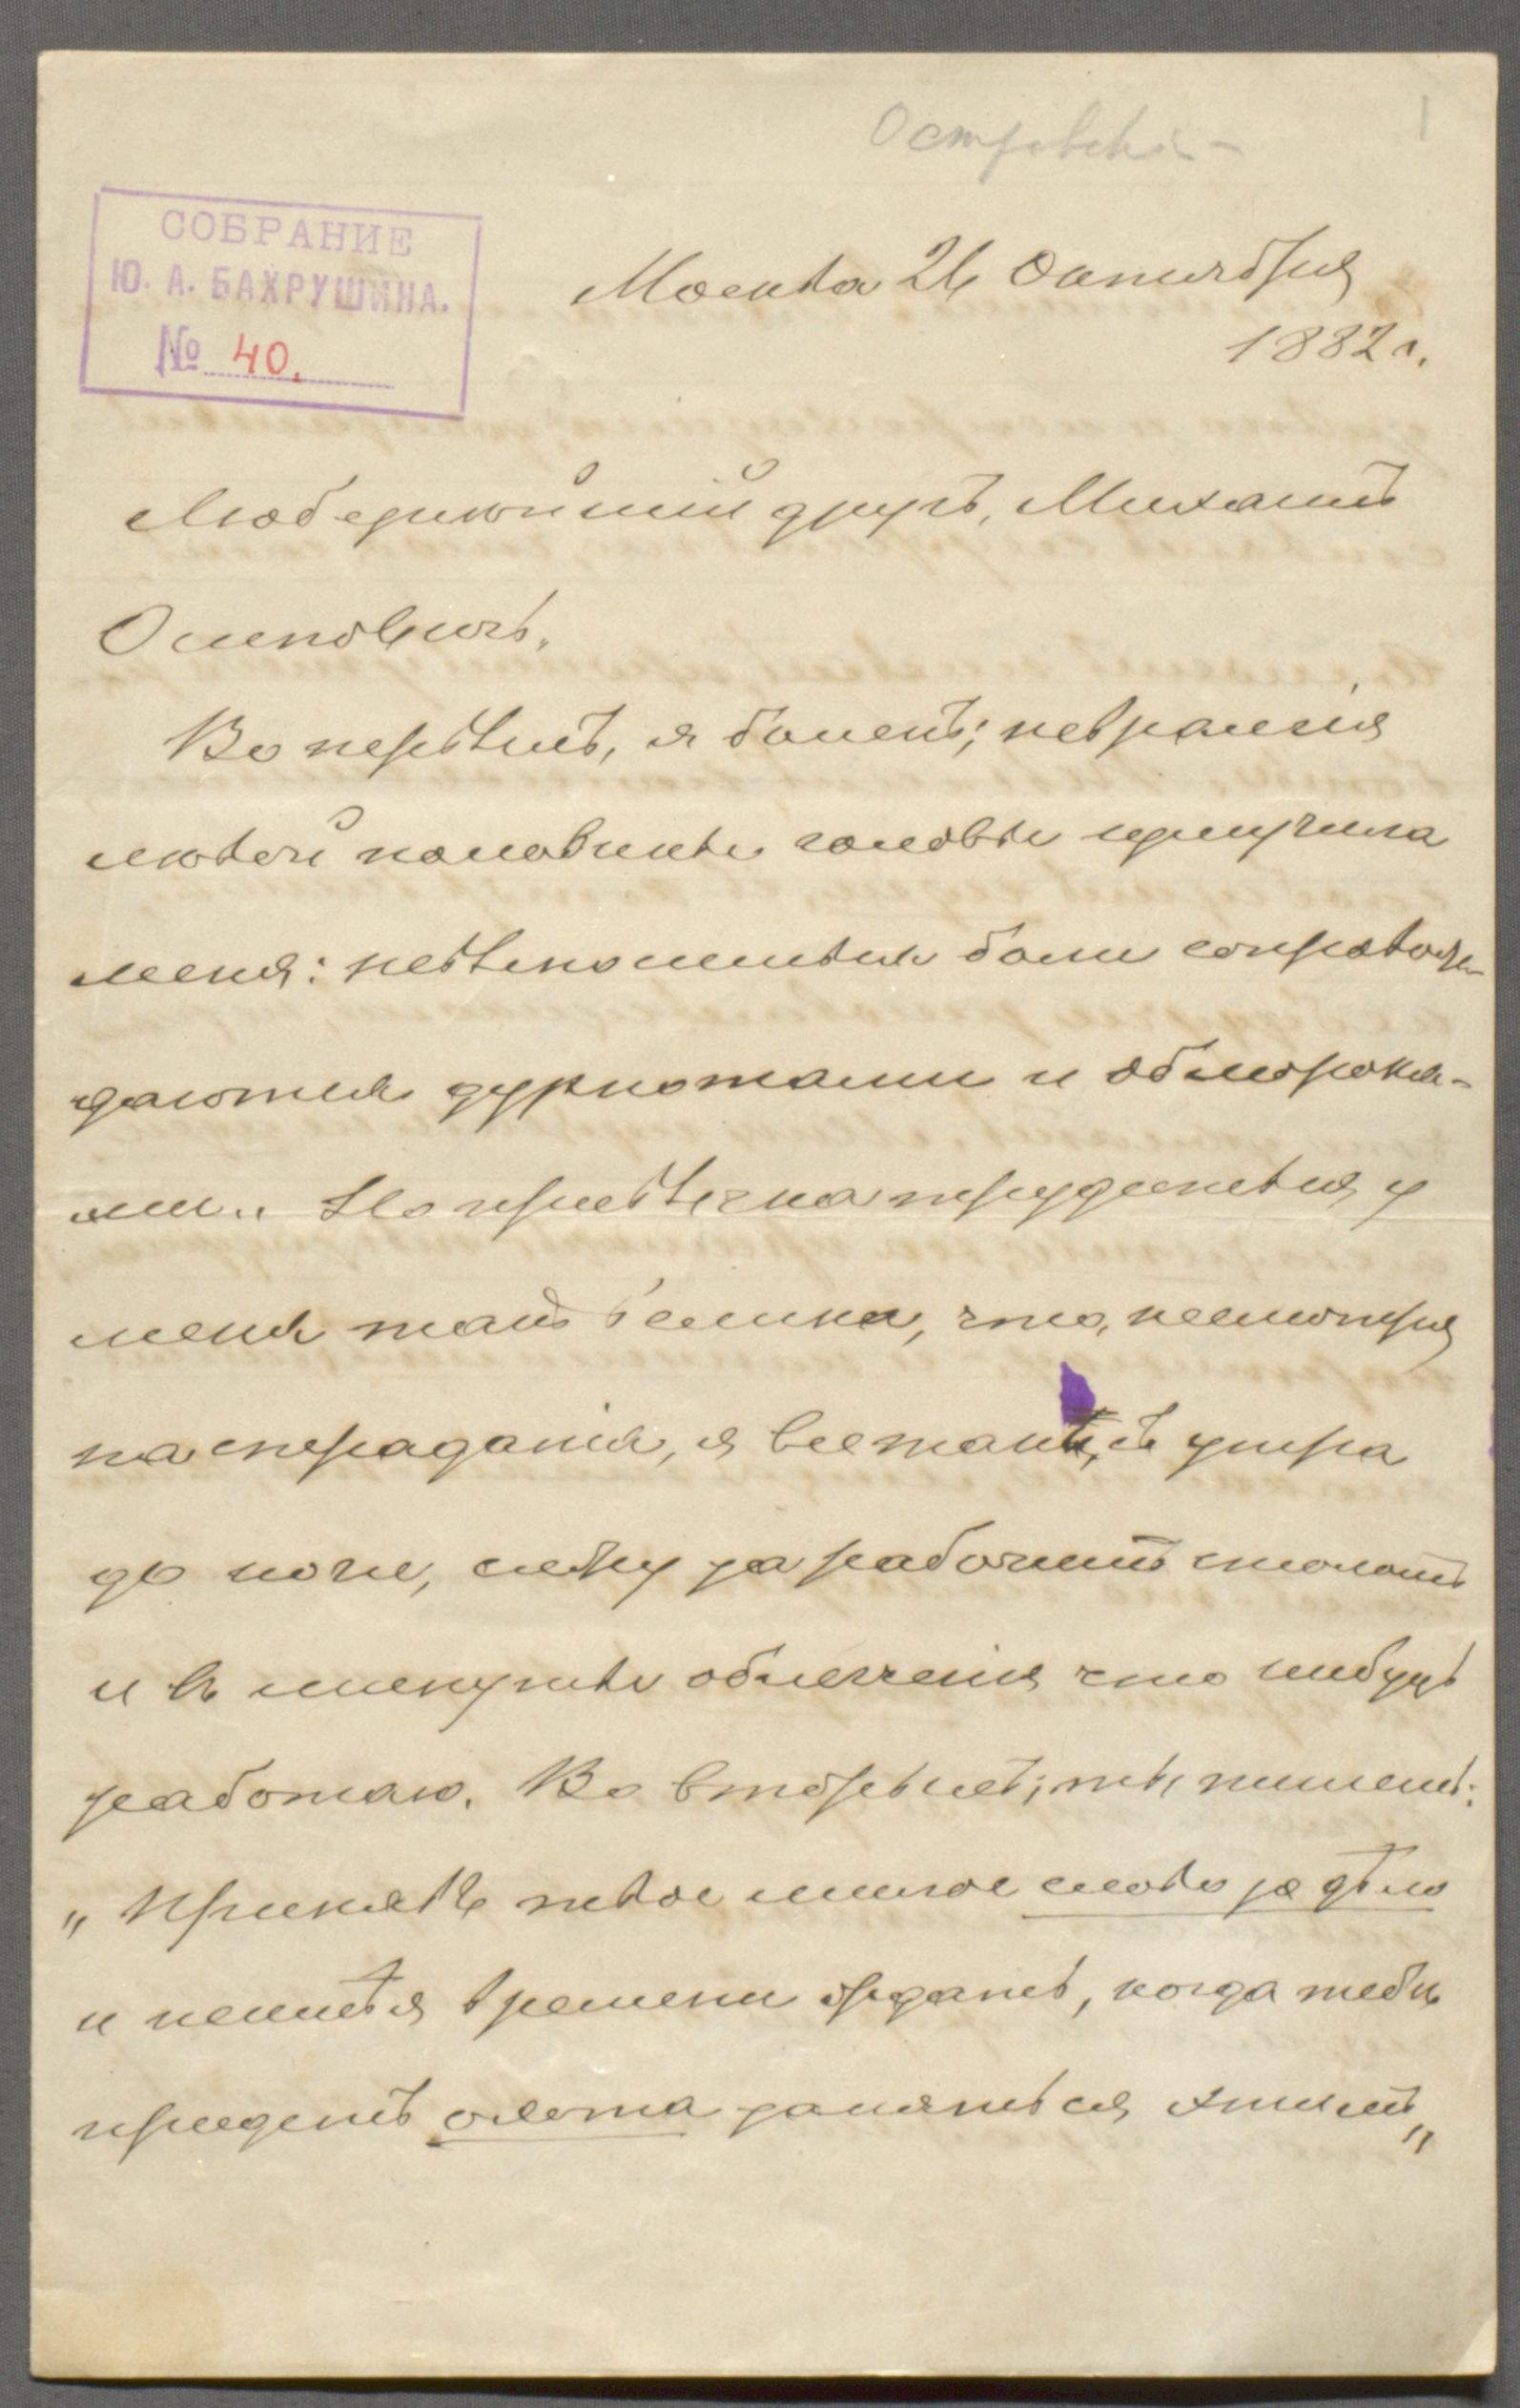 Островскій
1
СОБРАНИЕ
Ю. А. БАХРУШИНА.
№ 40.
Москва 26 Октября
1882 г.
Любезнѣйшій другъ, Михаилъ
Осиповичъ.
Во первыхъ, я боленъ; невралгія
лѣвой половины головы измучила
меня: невыносимыя боли сопровож-
даются дурнотами и обморока-
ми. Но привычка трудиться у
меня такъ велика, что, несмотря
на страданія, я все таки, съ утра
до ночи, сижу за рабочимъ столомъ
и въ минуты облегченія что нибудь
работаю. Во вторыхъ; ты пишешь:
„Принявъ твое милое слово за дѣло
и нашелся времени ждать, когда тебѣ
придетъ охота заняться этимъ„